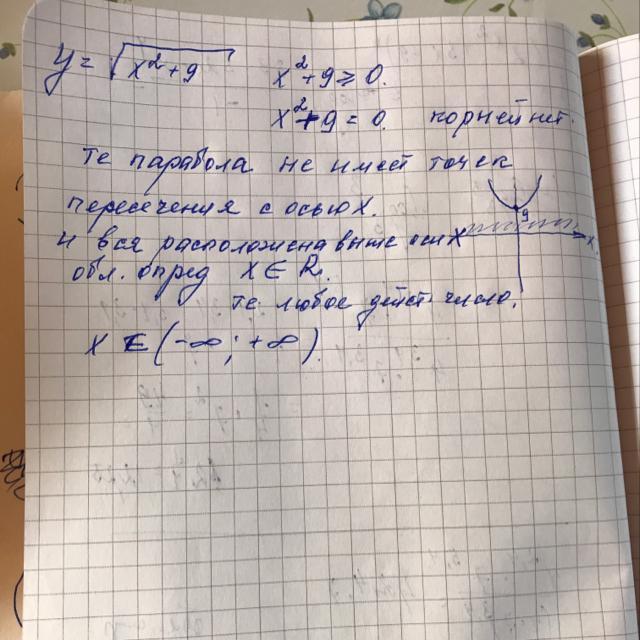 y = √x²+9    x²+9 ≥ 0.
x²+9 = 0.    корней нет.
те парабола не имеет точек
пересечения с осью X.
и вся расположена выше оси X
9
x
обл. опред X ∈ R.
те любое дейст. число.
X ∈ (-∞ ; +∞).